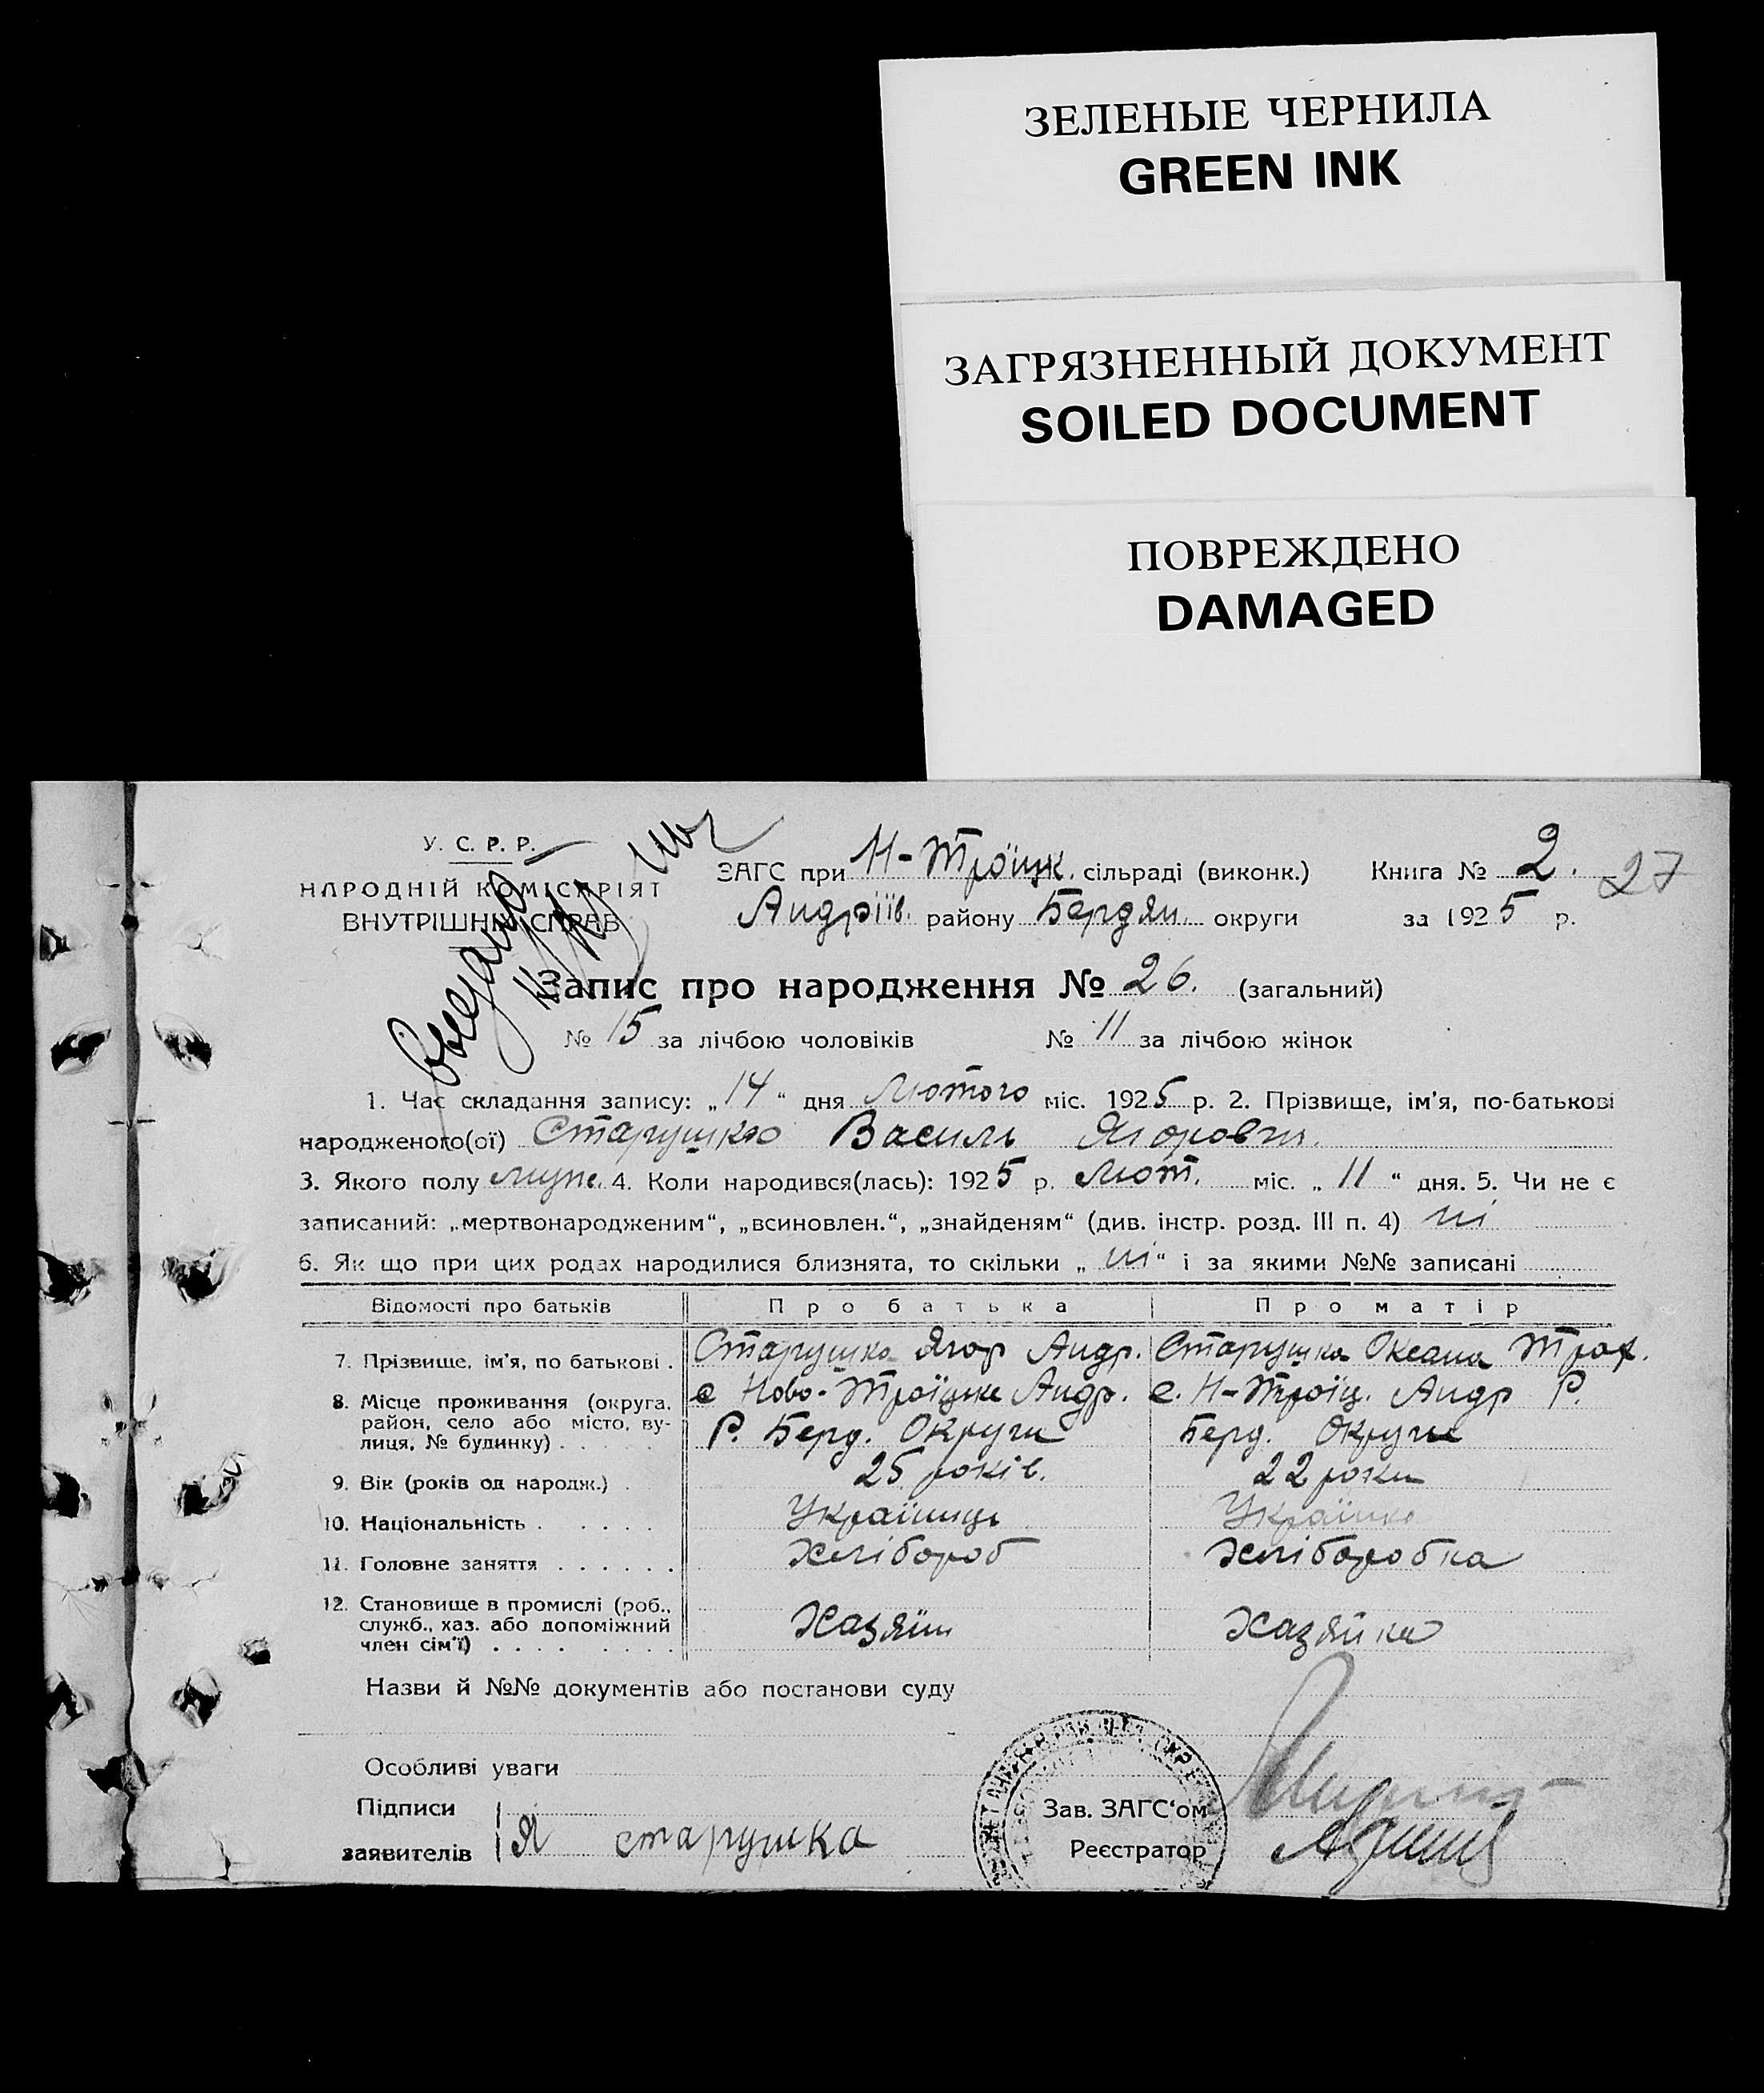 ЗЕЛЕНЫЕ ЧЕРНИЛА
GREEN INK
ЗАГРЯЗНЕННЫЙ ДОКУМЕНТ
SOILED DOCUMENT
ПОВРЕЖДЕНО
DAMAGED
У. С. Р. Р.
НАРОДНІЙ КОМІСАРІЯТ
ВНУТРІШНІХ СПРАВ
ЗАГС при Н-Троїцк. сільраді (виконк.) Книга № 2. 27
Андріїв. району Бердян. округи за 1925 р.
Запис про народження № 26. (загальний)
№ 15 за лічбою чоловіків № 11 за лічбою жінок
1. Час складання запису: „14“ дня Лютого міс. 1925 р. 2. Прізвище, ім'я, по-батькові
народженого(ої) Старушко Василь Ягорович.
3. Якого полу муж. 4. Коли народився(лась): 1925 р. Лют. міс. „11“ дня. 5. Чи не є
записаний: „мертвонародженим“, „всиновлен.“, „знайденям“ (див. інстр. розд. III п. 4) ні
6. Як що при цих родах народилися близнята, то скільки „ні“ і за якими №№ записані
Відомості про батьків Про батька Про матір
7. Прізвище, ім'я, по батькові . Старушка Ягор Андр. Старушка Оксана Троф.
8. Місце проживання (округа, район, село або місто, вулиця, № будинку) . . . . . с Ново-Троїцке Андр. с. Н-Троїц. Андр Р.
Р. Берд. Округи Берд. Округи
9. Вік (років од народж.) . 25 років. 22 роки
10. Національність . . . . . Українець Українка
11. Головне заняття . . . . . . Хлібороб Хліборобка
12. Становище в промислі (роб., служб., хаз. або допоміжний член сім'ї) . . . . . . . . Хазяїн Хазяйка
Назви й №№ документів або постанови суду
Особливі уваги
Підписи
заявителів Я старушка
Зав. ЗАГС‘ом
Реєстратор